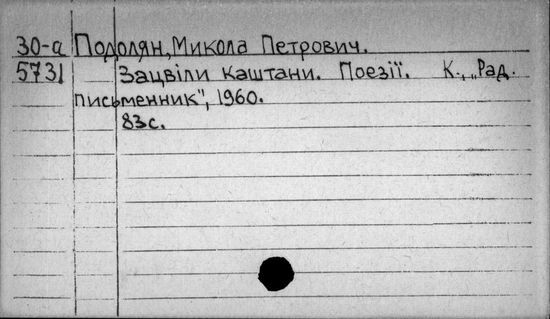 30-а Подолян, Микола Петрович.
5731 Зацвіли каштани. Поезії. К., „Рад.
письменник", 1960.
83с.